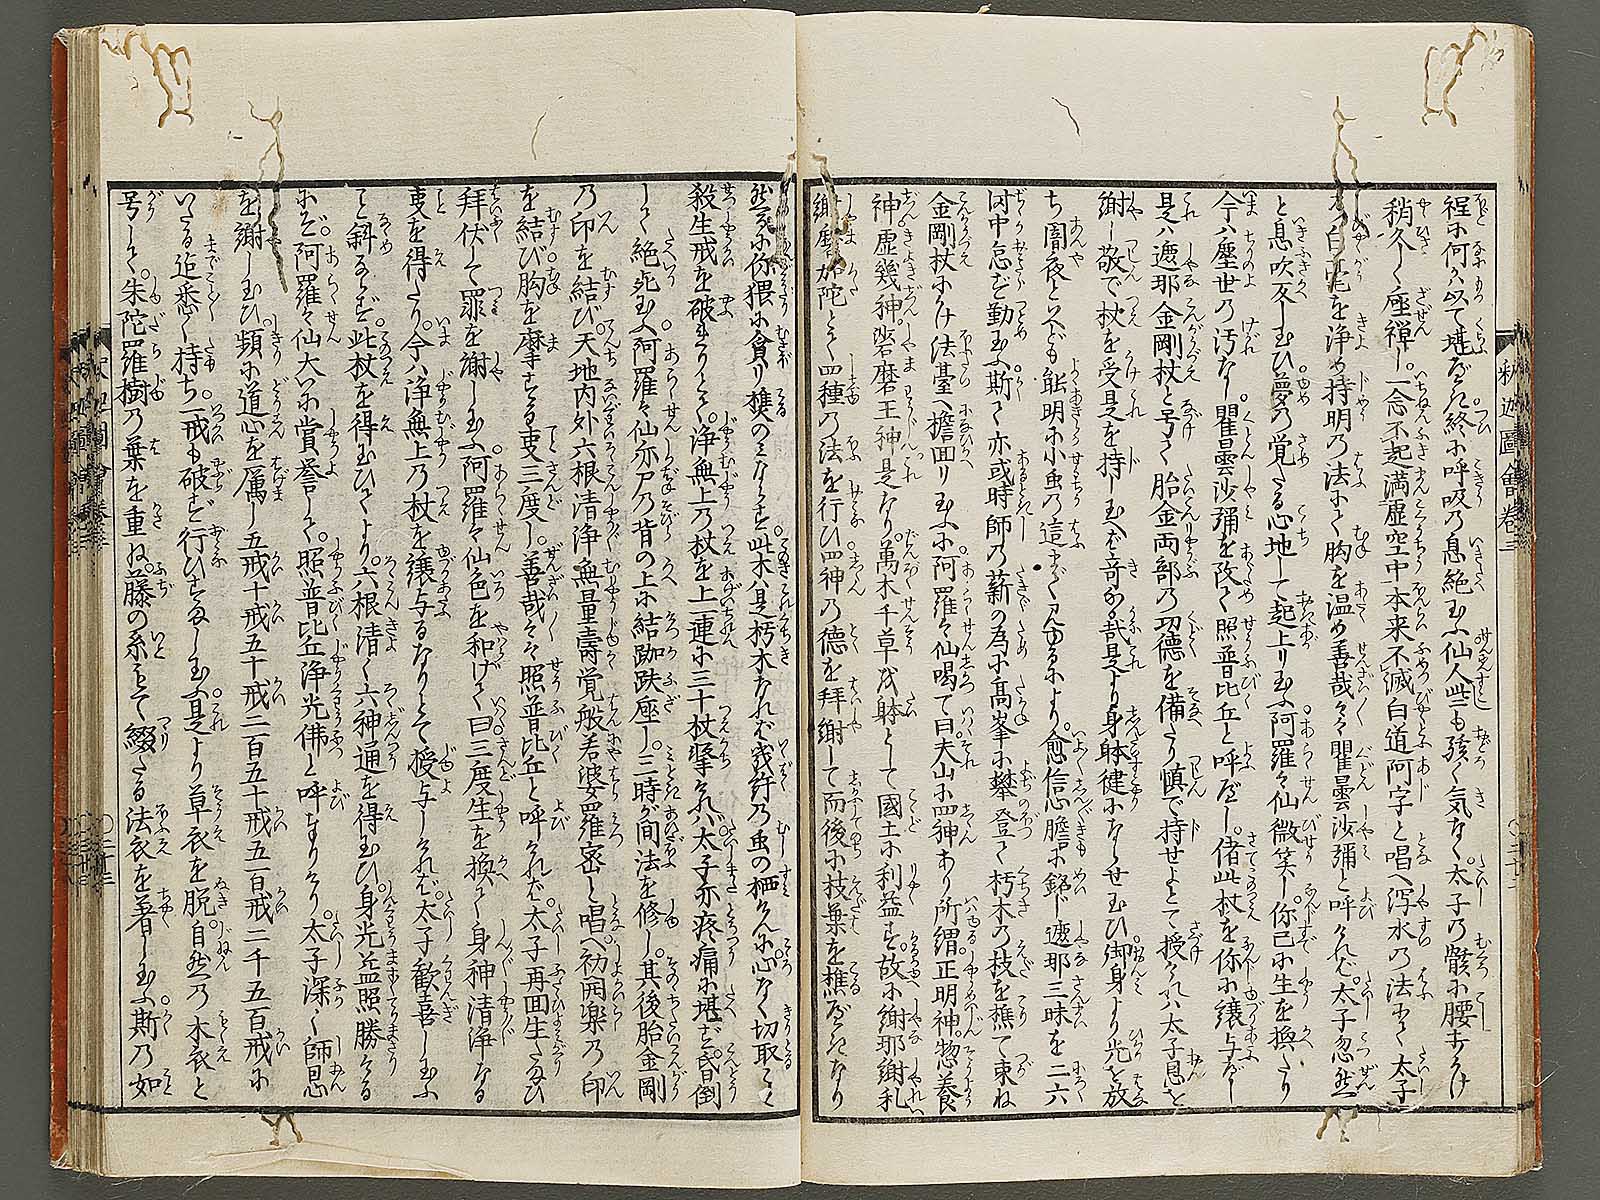 釈迦圖會巻三
程に何かは以て堪べき終に呼吸の息絶玉ふ仙人些も驚く気なく太子の骸に腰打かけ
稍久しく座禅し一念不起満虚空中本来不滅白道阿字と唱へ瀉水の法をもて太子
白毫を浄め持明の法にて胸を温め善哉々々瞿曇沙彌と呼ければ太子忽然
と息吹反し玉ひ夢の覚たる心地して起上り玉ふ阿羅々仙微笑し你已に生を換たり
今は塵世の汚なし瞿曇沙彌を改て照普比丘と呼べし偖此杖を你に譲与べし
是は遮那金剛杖と号て胎金両部の功徳を備たり慎で持せよとて授ければ太子恩を
謝し敬で杖を受是を持し玉へば奇なる哉是より身躰健にならせ玉ひ御身より光を放
ち闇夜といへども能明に小虫の這まで見ゆるにより愈信心膽に銘じ遮那三昧を二六
時中怠ず勤玉ふ斯て亦或時師の薪の為に高峯に攀登て朽木の枝を樵て束ね
金剛杖にかけ法臺へ擔回り玉ふに阿羅々仙喝て曰夫山に四神あり所謂正明神惣養
神虚幾神磨王神是なり萬木千草を躰として國土に利益す故に謝耶謝礼
謝磨如陀とて四種の法を行ひ四神の徳を拝謝して而後に枝葉を樵べきなり
然るに你猥に貪り樵のみならず此木は是朽木なれば幾許の虫の栖なるに心なく切取こと
殺生戒を破れりとて浄無上の杖を上一連に三十杖撃ければ太子亦疼痛に堪ず昏倒
して絶死玉ふ阿羅々仙亦尸の背の上に結跏趺座し三時が间法を修し其後胎金剛
の印を結び天地内外六根清浄無量壽覚般若婆羅密と唱へ初開楽の印
を結び胸を摩する事三度し善哉々々照普比丘と呼ければ太子再回生たび
拝伏して罪を謝し玉ふ阿羅々仙色を和げて曰三度生を換て身神清浄なる
事を得たり今は浄無上の杖を譲与るなりとて授与しければ太子歓喜し玉ふ
こと斜ならず此杖を得玉ひてより六根清く六神通を得玉ひ身光益照勝ける
にぞ阿羅々仙大いに賞誉して照普比丘浄光佛と呼まゐらせり太子深く師恩
を謝し玉ひ頻に道心を厲し五戒十戒五十戒二百五十戒五百戒二千五百戒に
いたる迄悉く持ち一戒も破ず行ひすまし玉ふ是より草衣を脱自然の木衣と
号して朱陀羅樹の葉を重ね藤の糸をもて綴たる法衣を著し玉ふ斯の如